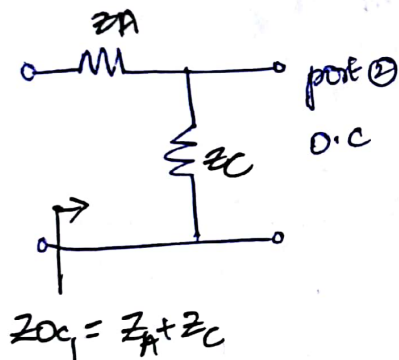 ZA
port ②
O.C
ZC
ZOC1 = ZA + ZC